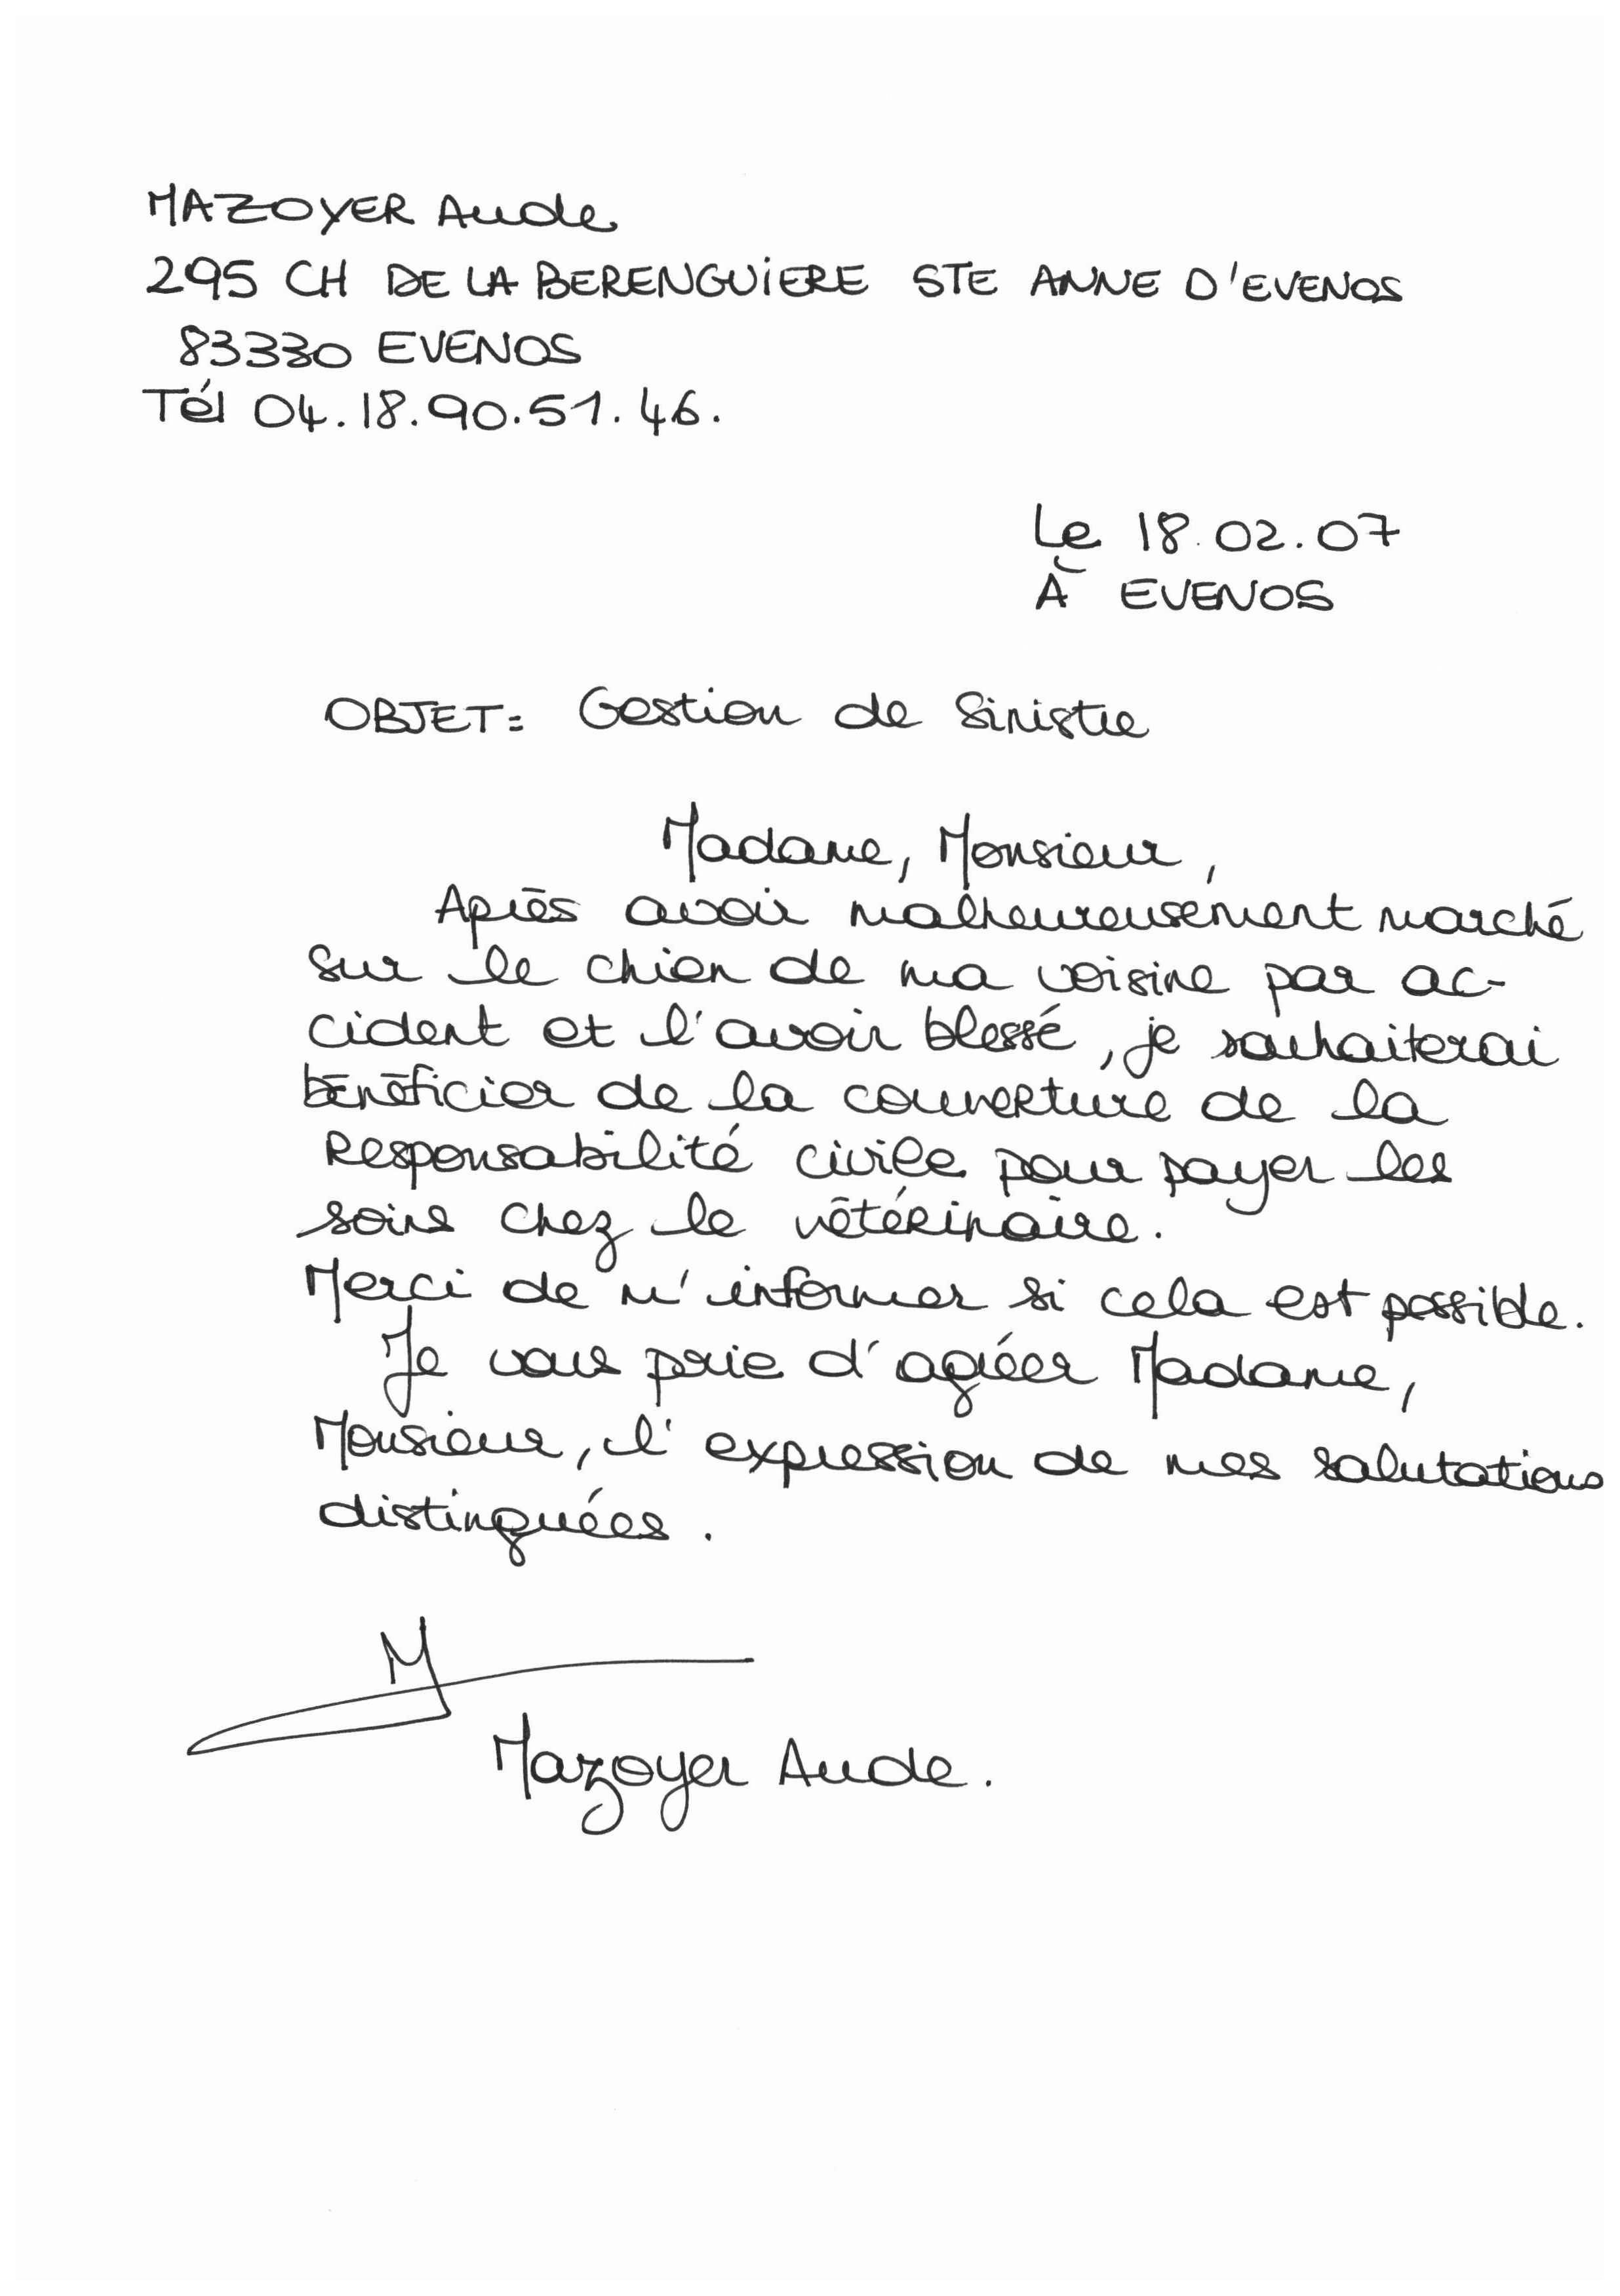 MAZOYER Aude
295 CH DE LA BERENGUIERE STE ANNE D'EVENOS
83330 EVENOS
Tél 04.18.90.51.46.
Le 18.02.07
À EVENOS
OBJET: Gestion de Sinistre
Madame, Monsieur,
Après avoir malheureusement marché
sur le chien de ma voisine par ac-
cident et l'avoir blessé, je souhaiterai
bénéficier de la couverture de la
Responsabilité civile pour payer les
soins chez le vétérinaire.
Merci de m'informer si cela est possible.
Je vous prie d'agréer Madame,
Monsieur, l'expression de mes salutations
distinguées.
M
Mazoyer Aude.